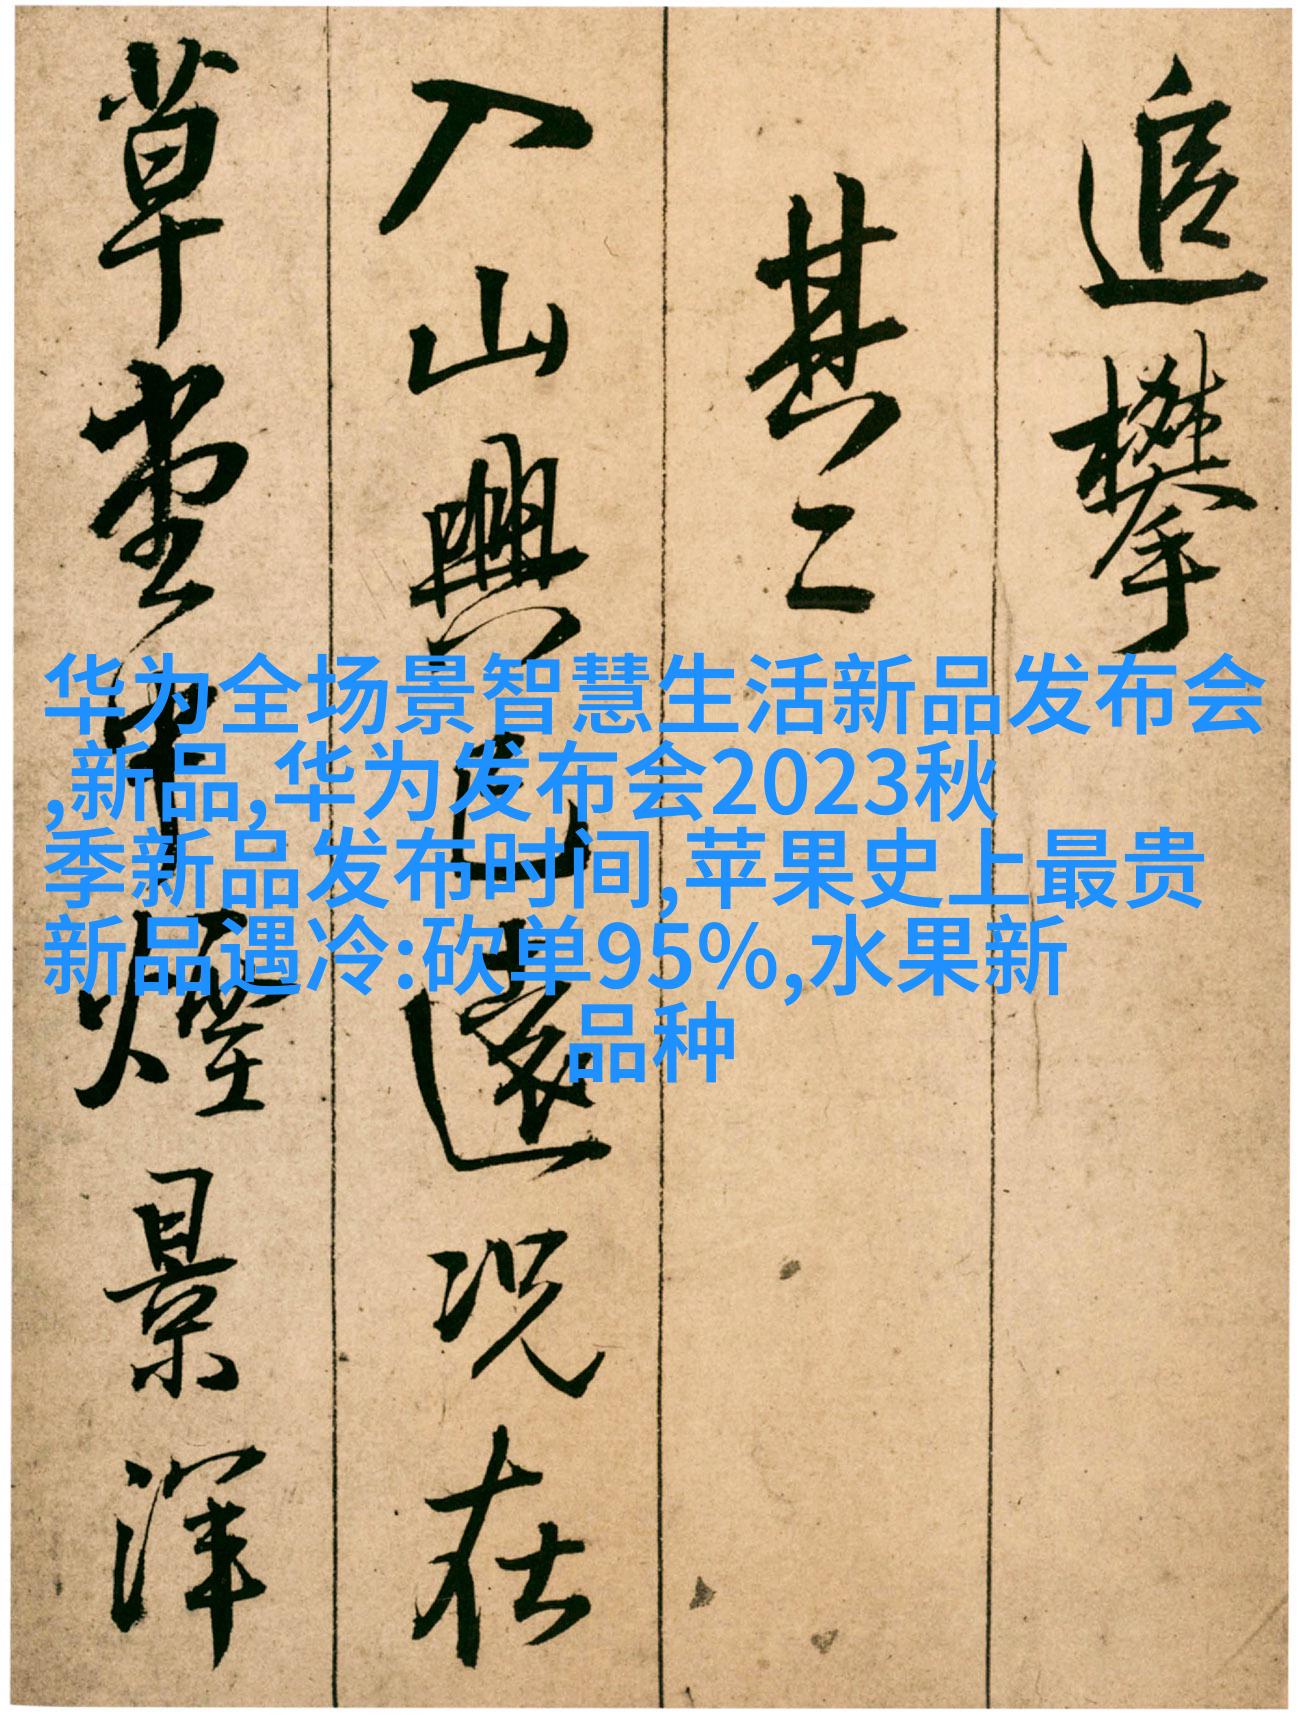 追攀
其二
入山興已遠况在
草堂中煙景渾
华为全场景智慧生活新品发布会
,新品,华为发布会2023秋
季新品发布时间,苹果史上最贵
新品遇冷:砍单95%,水果新
品种